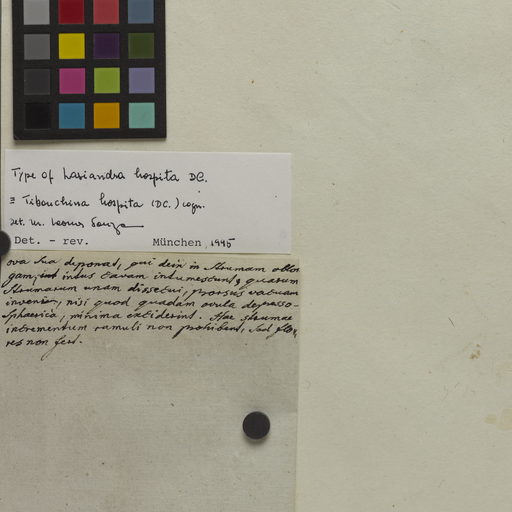 Type of Lasiandra hospita DC.
≡ Tibouchina hospita (DC.) Cogn.
det. M. Leonor Souza
Det. - rev. München, 1995
ova sua deponat, qui dein in strumam oblon
gam, intus cavam intumescunt, quarum
strumarum unam dissecui, prorsus vacuam
inveni, nisi quod quaedam ovula depresso-
sphaerica, minima exciderint. Hae strumae
incrementum ramuli non prohibent, sed flo,
res non fert.